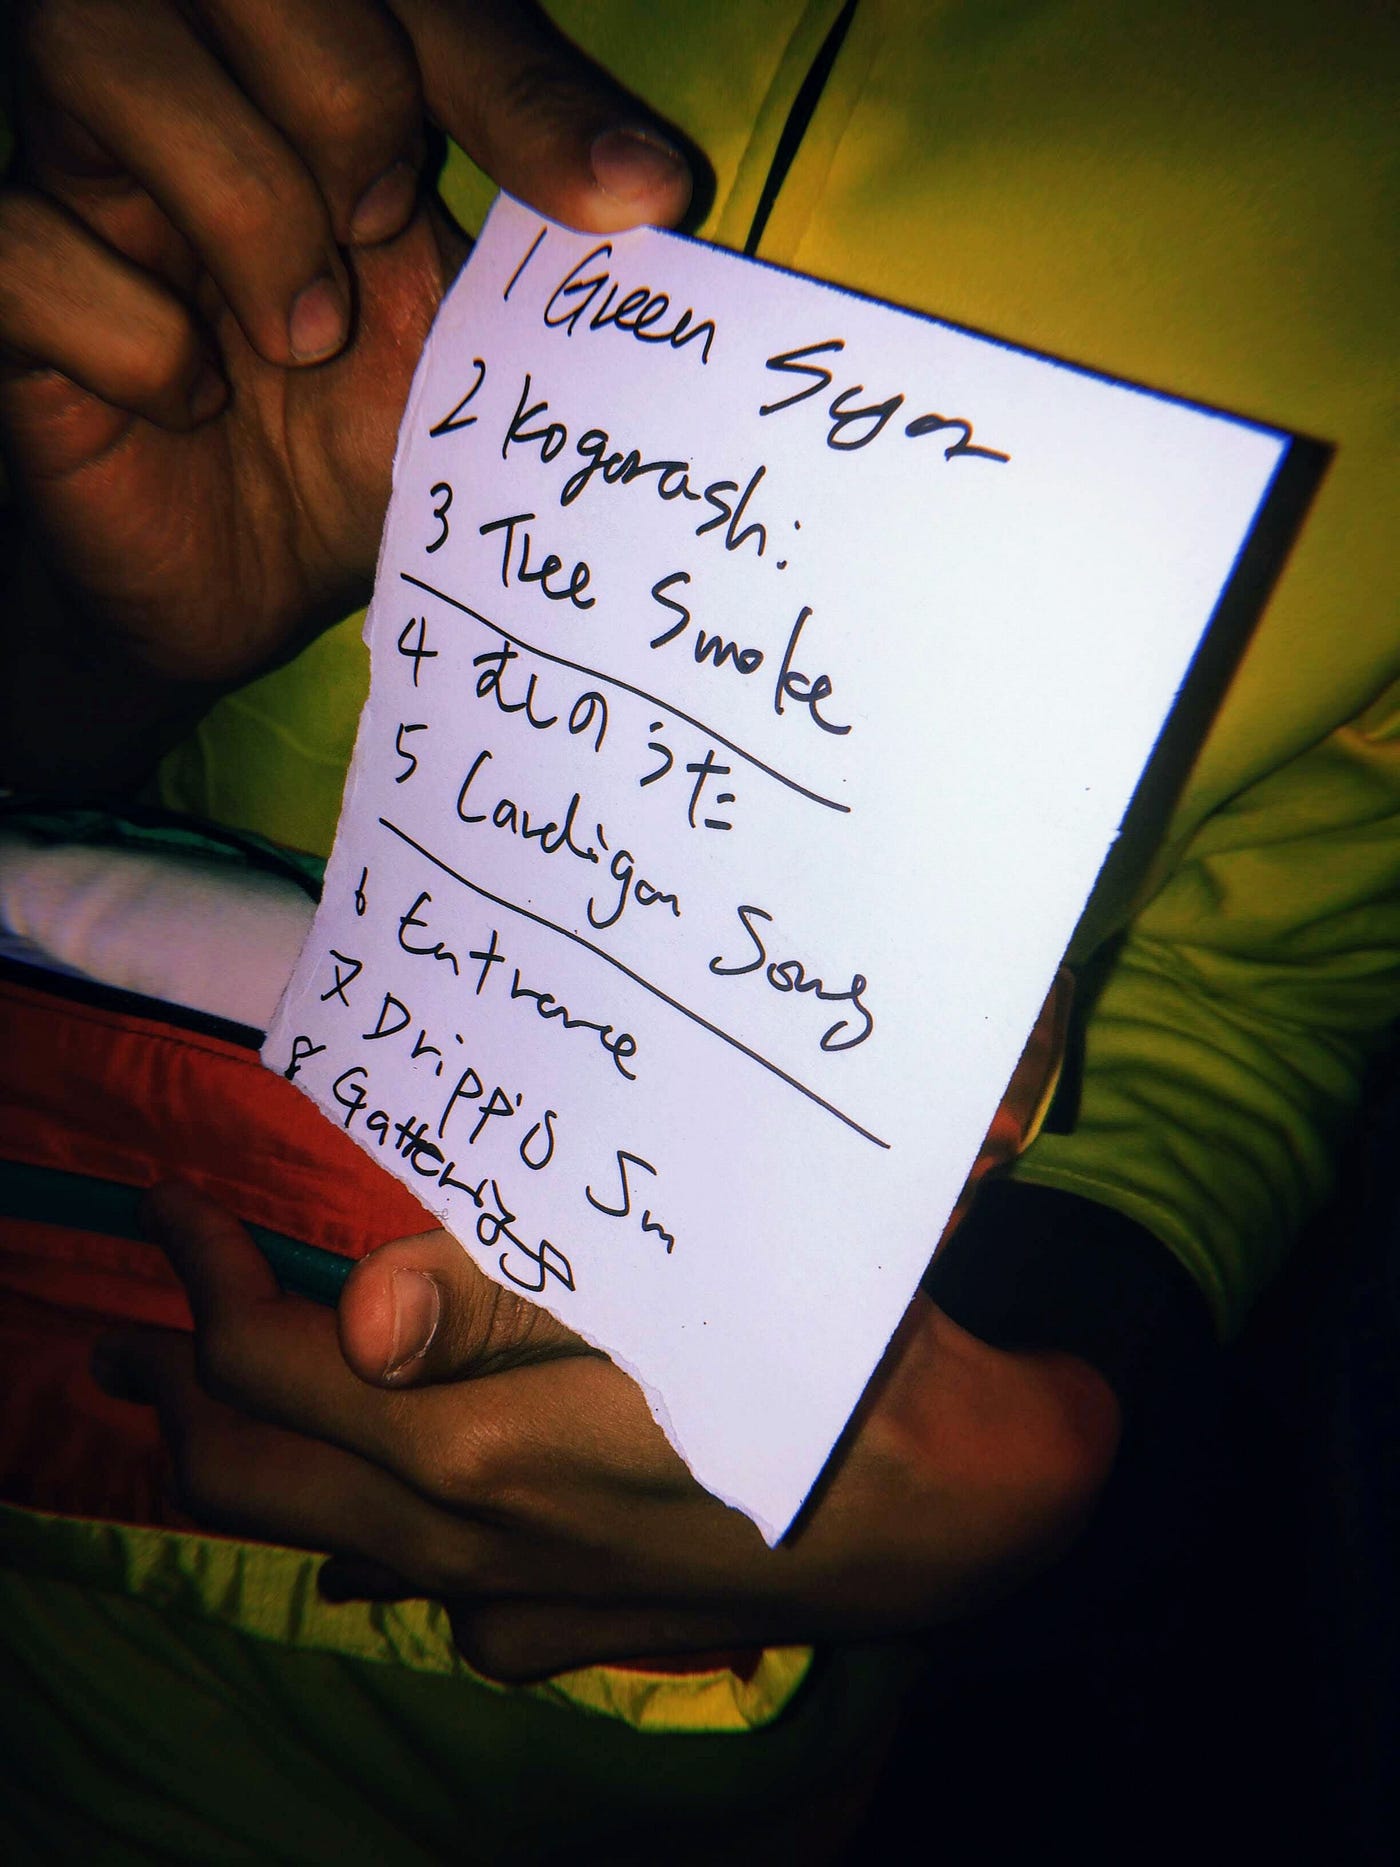 1 Green Sugar
2 Kogarashi
3 Tree Smoke
4 むしのうた
5 Cardigan Song
6 Entrance
7 Dripp'g Sun
8 Gatherings